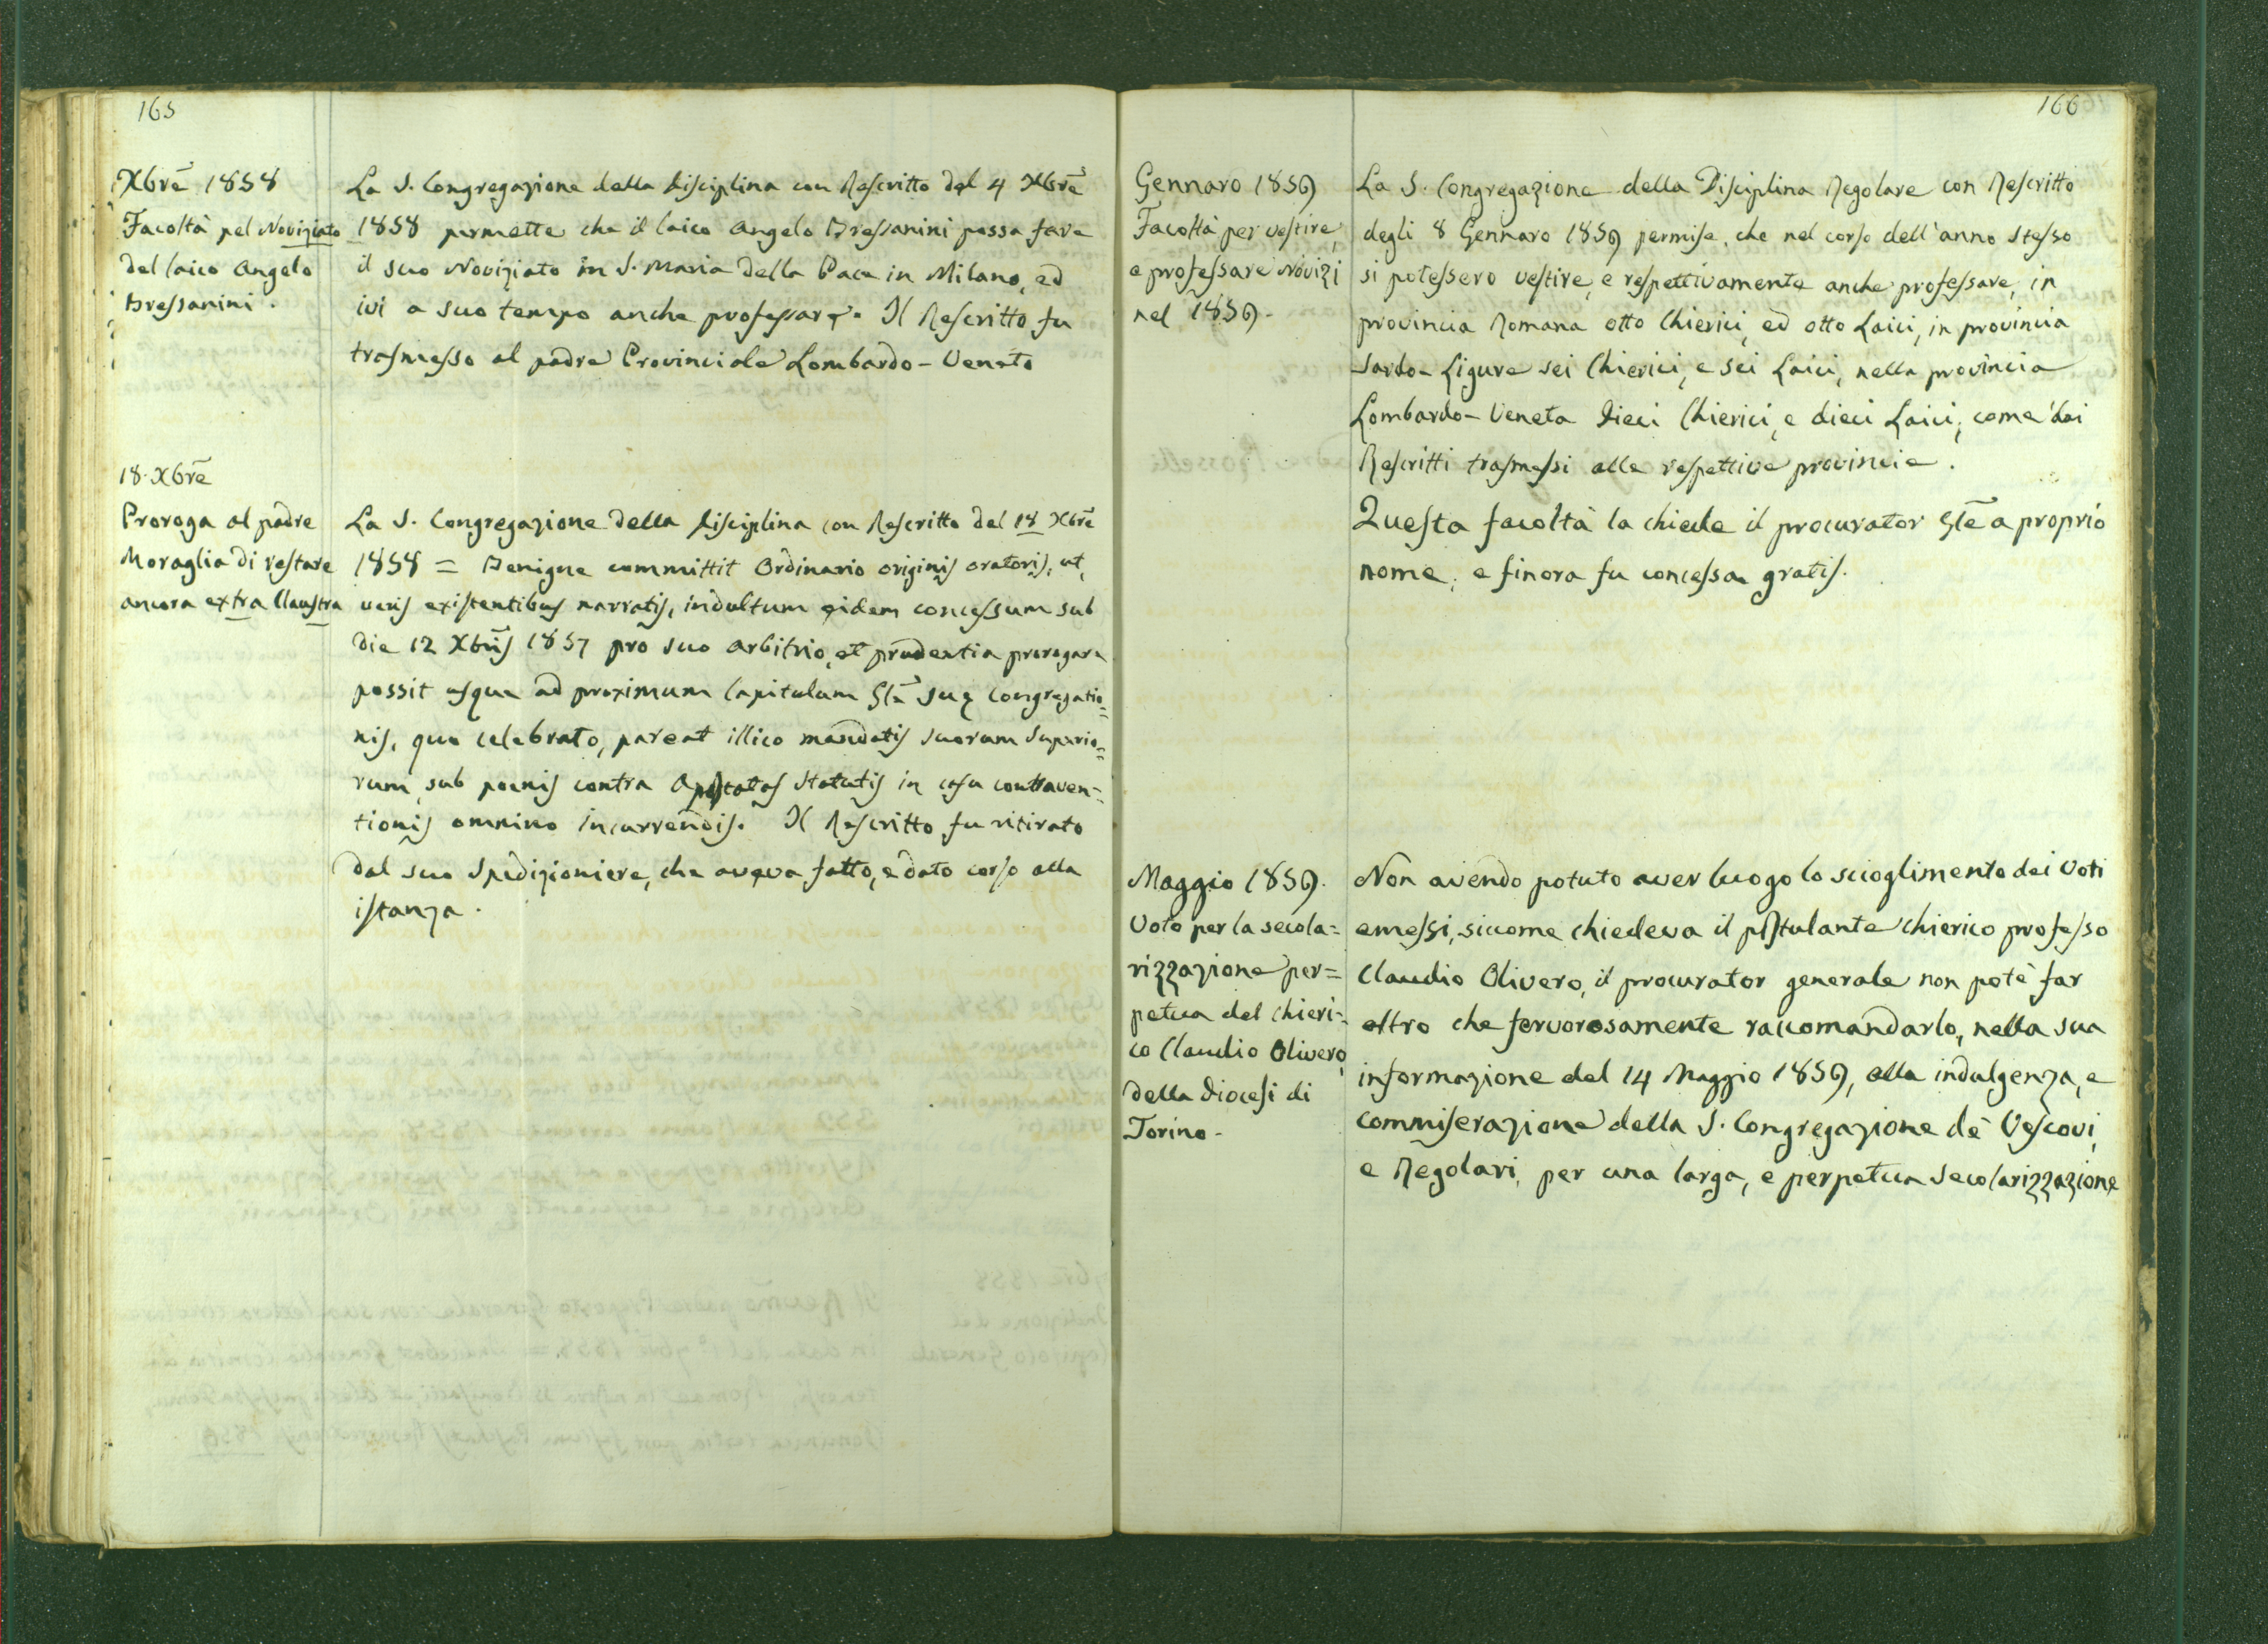 165
Xbrē 1858
Facoltà pel Noviziato
del laico Angelo
Bressanini.
La S. Congregazione della disciplina con Rescritto del 4 Xbrē
1858 permette che il laico Angelo Bressanini possa fare
il suo Noviziato in S. Maria della Pace in Milano, ed
ivi a suo tempo anche professare. Il Rescritto fu
trasmesso al padre Provinciale Lombardo-Veneto
18. Xbrē
Proroga al padre
Moraglia di restare
ancora extra Claustra
La S. Congregazione della disciplina con Rescritto del 18 Xbrē
1858 = Benigne committit Ordinario originis oratoris, ut,
veris existentibus narratis, indultum eidem concessum sub
die 12 Xbris 1857 pro suo arbitrio, et prudentia prorogare
possit usque ad proximum Capitulum Glē suę Congregatio=
nis, quo celebrato, pareat illico mandatis suorum Superio=
rum, sub poenis contra Apostatas Statutis in casu contraven=
tionis omnino incurrendis. Il Rescritto fu ritirato
dal suo Spedizioniere, che aveva fatto, e dato corso alla
istanza.
166
Gennaro 1859
Facoltà per vestire,
e professare Novizi
nel 1859.
La S. Congregazione della Disciplina Regolare con Rescritto
degli 8 Gennaro 1859 permise, che nel corso dell'anno stesso
si potessero vestire, e respettivamente anche professare, in
provincia Romana otto Chierici, ed otto Laici, in provincia
Sardo-Ligure sei Chierici, e sei Laici, nella provincia
Lombardo-Veneta dieci Chierici, e dieci Laici, come dai
Rescritti trasmessi alle respettive provincie.
Questa facoltà la chiede il procurator Glē a proprio
nome, e finora fu concessa gratis.
Maggio 1859.
Voto per la secola=
rizzazione per=
petua del chieri=
co Claudio Olivero,
della diocesi di
Torino.
Non avendo potuto aver luogo lo scioglimento dei Voti
emessi, siccome chiedeva il postulante chierico professo
Claudio Olivero, il procurator generale non potè far
altro che fervorosamente raccomandarlo, nella sua
informazione del 14 Maggio 1859, alla indulgenza, e
commiserazione della S. Congregazione de' Vescovi,
e Regolari, per una larga, e perpetua secolarizzazione